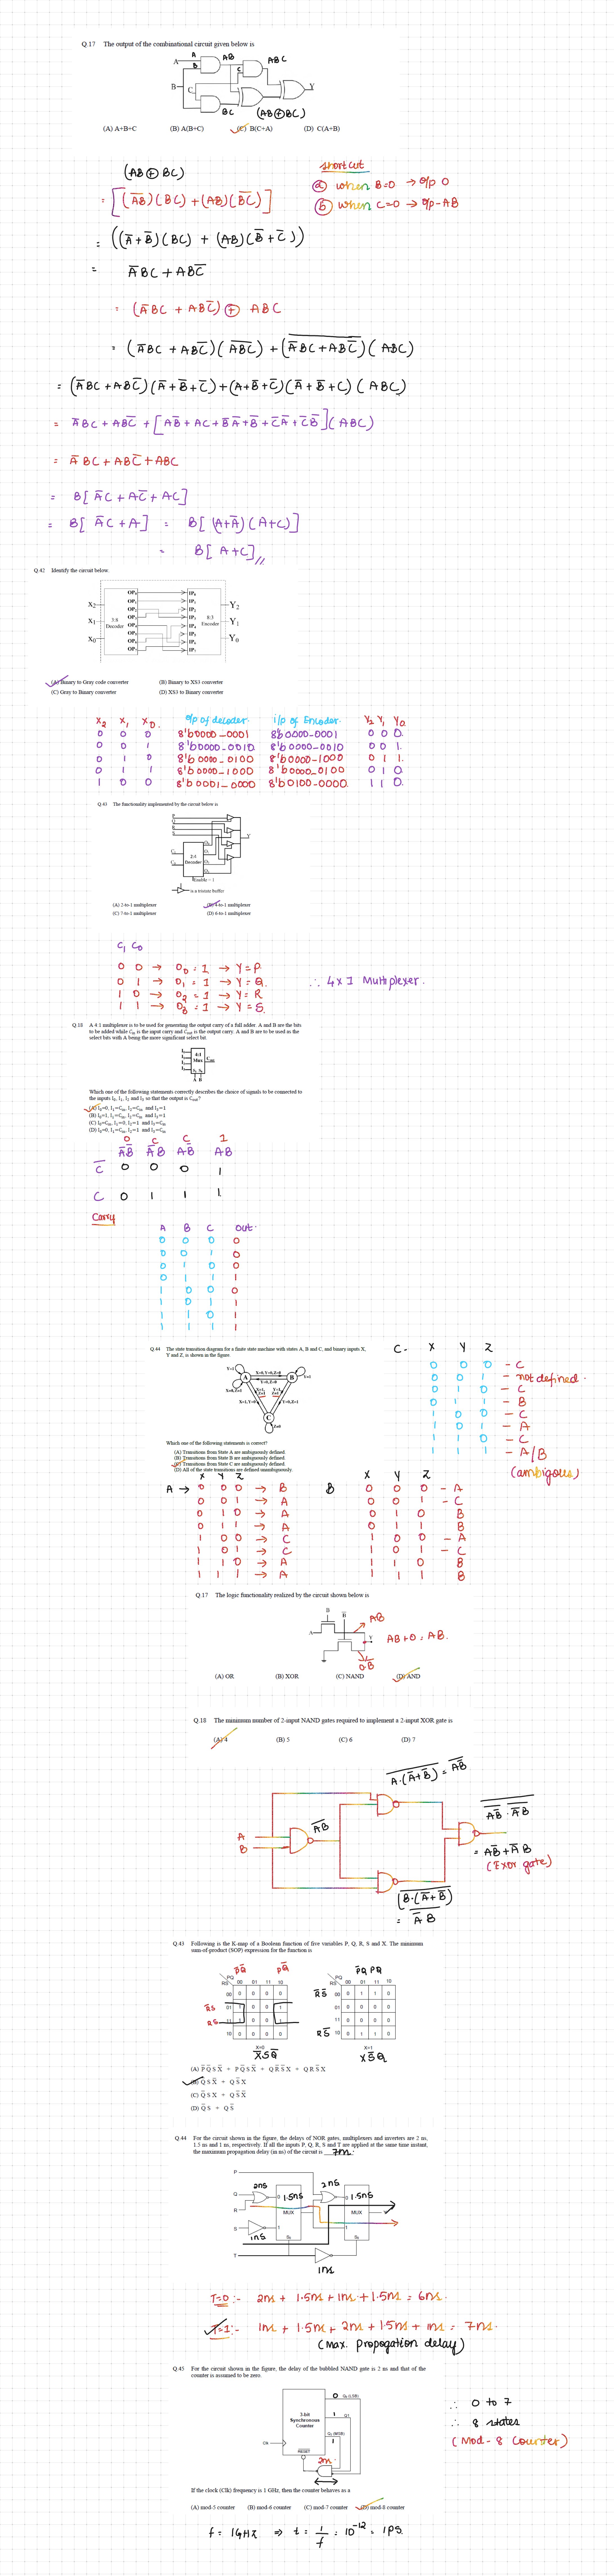 Q.17 The output of the combinational circuit given below is
A
B
C
A
B
AB
C
ABC
Y
BC
(AB⊕BC)
(A) A+B+C (B) A(B+C) (C) B(C+A) (D) C(A+B)
(AB ⊕ BC)
= [(A̅B̅)(BC) + (AB)(B̅C̅)]
shortcut
ⓐ when B=0 → o/p 0
ⓑ when C=0 → o/p - AB
= ((A̅+B̅)(BC) + (AB)(B̅+C̅))
= A̅BC + ABC̅
= (A̅BC + ABC̅) ⊕ ABC
= (A̅BC + ABC̅)(A̅B̅C̅) + (A̅BC + ABC̅)(ABC)
= (A̅BC + ABC̅)(A̅+B̅+C̅)+(A+B̅+C̅)(A̅+B̅+C)(ABC)
= A̅BC + ABC̅ + [AB̅ + AC + B̅A̅+B̅ + C̅A̅ + C̅B̅](ABC)
= A̅BC + ABC̅ + ABC
= B[A̅C + AC̅ + AC]
= B[A̅C + A] = B[(A+A̅)(A+C)]
= B[A+C]//
Q.42 Identify the circuit below.
X₂
X₁
X₀
3:8 Decoder
OP₀
OP₁
OP₂
OP₃
OP₄
OP₅
OP₆
OP₇
IP₀
IP₁
IP₂
IP₃
IP₄
IP₅
IP₆
IP₇
8:3 Encoder
Y₂
Y₁
Y₀
(A) Binary to Gray code converter (B) Binary to XS3 converter
(C) Gray to Binary converter (D) XS3 to Binary converter
X₂ X₁ X₀. o/p of decoder. i/p of Encoder. Y₂ Y₁ Y₀
0 0 0 8'b0000-0001 8'b0000-0001 0 0 0.
0 0 1 8'b0000-0010. 8'b0000-0010 0 0 1.
0 1 0 8'b0000-0100 8'b0000-1000 0 1 1.
0 1 1 8'b0000-1000 8'b0000-0100 0 1 0.
1 0 0 8'b0001-0000 8'b0100-0000. 1 1 0.
Q.43 The functionality implemented by the circuit below is
P
Q
R
S
Y
C₁
C₀
2:4 Decoder
O₀
O₁
O₂
O₃
Enable = 1
is a tristate buffer
(A) 2-to-1 multiplexer (B) 4-to-1 multiplexer
(C) 7-to-1 multiplexer (D) 6-to-1 multiplexer
C₁ C₀
0 0 → O₀ = 1 → Y = P.
0 1 → O₁ = 1 → Y = Q.
1 0 → O₂ = 1 → Y = R
1 1 → O₃ = 1 → Y = S.
∴ 4x1 Multiplexer.
Q.18 A 4:1 multiplexer is to be used for generating the output carry of a full adder. A and B are the bits
to be added while Cin is the input carry and Cout is the output carry. A and B are to be used as the
select bits with A being the more significant select bit.
I₀
I₁
I₂
I₃
4:1 Mux
S₁ S₀
Cout
A B
Which one of the following statements correctly describes the choice of signals to be connected to
the inputs I₀, I₁, I₂ and I₃ so that the output is Cout?
(A) I₀=0, I₁=Cin, I₂=Cin and I₃=1
(B) I₀=1, I₁=Cin, I₂=Cin and I₃=1
(C) I₀=Cin, I₁=0, I₂=1 and I₃=Cin
(D) I₀=0, I₁=Cin, I₂=1 and I₃=Cin
0 C C 1
A̅B̅ A̅B AB̅ AB
C̅ 0 0 0 1
C 0 1 1 1.
Carry
A B C out.
0 0 0 0
0 0 1 0
0 1 0 0
0 1 1 1
1 0 0 0
1 0 1 1
1 1 0 1
1 1 1 1
Q.44 The state transition diagram for a finite state machine with states A, B and C, and binary inputs X,
Y and Z, is shown in the figure.
Y=1
X=0,Y=0,Z=0
A
B
Y=0,Z=0
Y=1
X=0,Z=1
X=1,Y=0
X=1, Z=1
Y=1, Z=1
Y=0,Z=1
C
Z=0
Which one of the following statements is correct?
(A) Transitions from State A are ambiguously defined.
(B) Transitions from State B are ambiguously defined.
(C) Transitions from State C are ambiguously defined.
(D) All of the state transitions are defined unambiguously.
C - X Y Z
0 0 0 - C
0 0 1 - not defined.
0 1 0 - C
0 1 1 - B
1 0 0 - C
1 0 1 - A
1 1 0 - C
1 1 1 - A/B
(ambigous)
A → X Y Z
0 0 0 → B
0 0 1 → A
0 1 0 → A
0 1 1 → A
1 0 0 → C
1 0 1 → C
1 1 0 → A
1 1 1 → A
B X Y Z
0 0 0 - A
0 0 1 - C
0 1 0 B
0 1 1 B
1 0 0 - A
1 0 1 - C
1 1 0 B
1 1 1 B
Q.17 The logic functionality realized by the circuit shown below is
B
B̅
A
Y
AB
AB+0 = AB.
0.B̅
(A) OR (B) XOR (C) NAND (D) AND
Q.18 The minimum number of 2-input NAND gates required to implement a 2-input XOR gate is
(A) 4 (B) 5 (C) 6 (D) 7
A.(A̅+B̅) = AB̅
A
B
A̅B̅
AB̅ . A̅B
= AB̅ + A̅B
(Exor gate)
(B.(A̅+B̅))
= A̅B
Q.43 Following is the K-map of a Boolean function of five variables P, Q, R, S and X. The minimum
sum-of-product (SOP) expression for the function is
P̅Q̅ PQ̅
PQ
RS 00 01 11 10
00 0 0 0 0
R̅S 01 1 0 0 1
RS 11 1 0 0 1
10 0 0 0 0
X=0
X̅SQ̅
P̅Q PQ
PQ
RS 00 01 11 10
R̅S̅ 00 0 1 1 0
01 0 0 0 0
11 0 0 0 0
RS̅ 10 0 1 1 0
X=1
XS̅Q
(A) P̅Q̅SX̅ + PQ̅SX̅ + QR̅S̅X + QRS̅X
(B) Q̅SX̅ + QS̅X
(C) Q̅SX + QS̅X̅
(D) Q̅S + QS̅
Q.44 For the circuit shown in the figure, the delays of NOR gates, multiplexers and inverters are 2 ns,
1.5 ns and 1 ns, respectively. If all the inputs P, Q, R, S and T are applied at the same time instant,
the maximum propagation delay (in ns) of the circuit is 7ns.
P
Q
R
S
T
2ns
1.5ns
2ns
1.5ns
0
MUX
1
S₀
0
MUX
1
S₀
Y
1ns
1ns
T=0 :- 2ns + 1.5ns + 1ns + 1.5ns = 6ns.
T=1 :- 1ns + 1.5ns + 2ns + 1.5ns + 1ns = 7ns.
(max. propogation delay)
Q.45 For the circuit shown in the figure, the delay of the bubbled NAND gate is 2 ns and that of the
counter is assumed to be zero.
3-bit
Synchronous
Counter
Clk
RESET
0 Q₀ (LSB)
1 Q₁
1 Q₂ (MSB)
2ns.
∴ 0 to 7
∴ 8 states
(Mod-8 Counter)
If the clock (Clk) frequency is 1 GHz, then the counter behaves as a
(A) mod-5 counter (B) mod-6 counter (C) mod-7 counter (D) mod-8 counter
f = 1GHz ⇒ t = 1/f = 10⁻¹² = 1PS.